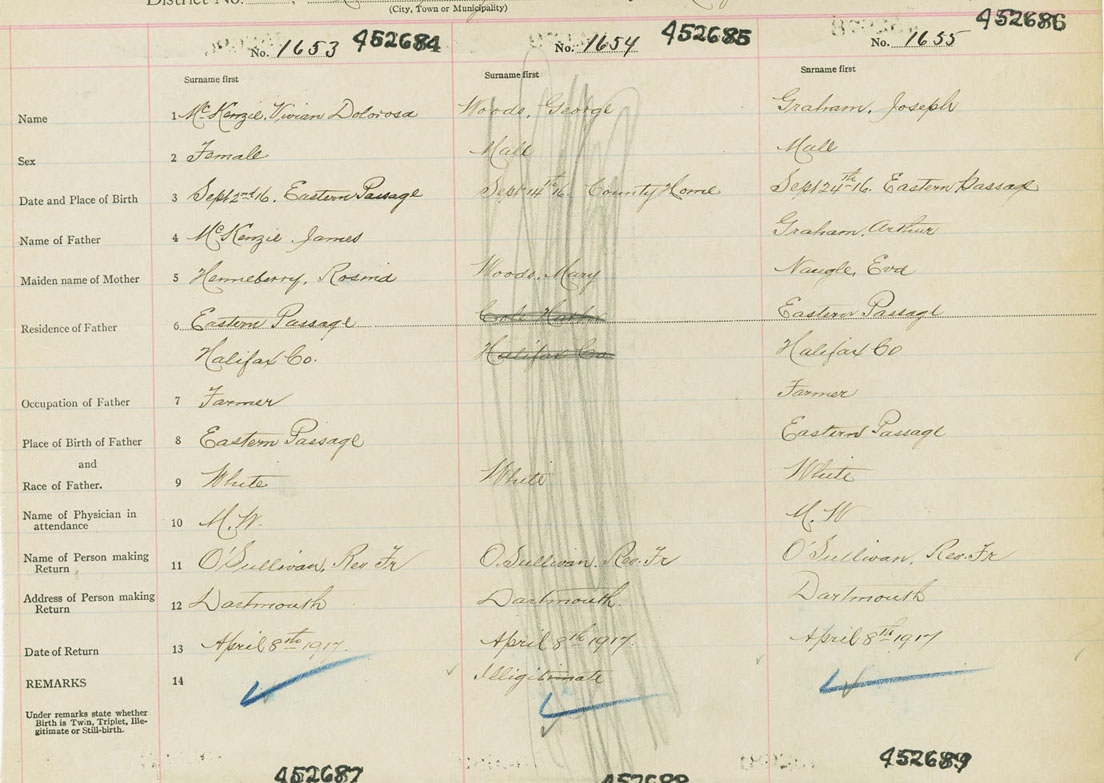 District No.
(City, Town or Municipality)
No. 1653 452684 No. 1654 452685 No. 1655 452686
Surname first Surname first Surname first
Name 1 McKenzie, Vivian Dolorosa Woods, George Graham, Joseph
Sex 2 Female Male Male
Date and Place of Birth 3 Sept 2nd 16. Eastern Passage Sept 14th 16. County Home Sept 24th 16. Eastern Passage
Name of Father 4 McKenzie James Graham, Arthur
Maiden name of Mother 5 Henneberry, Rosina Woods, Mary Naugle, Eva
Residence of Father 6 Eastern Passage Cole Harbor Eastern Passage
Halifax Co. Halifax Co Halifax Co
Occupation of Father 7 Farmer Farmer
Place of Birth of Father 8 Eastern Passage Eastern Passage
and
Race of Father. 9 White White White
Name of Physician in
attendance 10 M. W. M. W
Name of Person making
Return 11 O'Sullivan, Rev Fr O.Sullivan, Rev. Fr O'Sullivan, Rev. Fr
Address of Person making
Return 12 Dartmouth Dartmouth. Dartmouth
Date of Return 13 April 8th 1917. April 8th 1917. April 8th 1917
REMARKS 14 Illigitimate
Under remarks state whether
Birth is Twin, Triplet, Ille-
gitimate or Still-birth.
452687 452688 452689